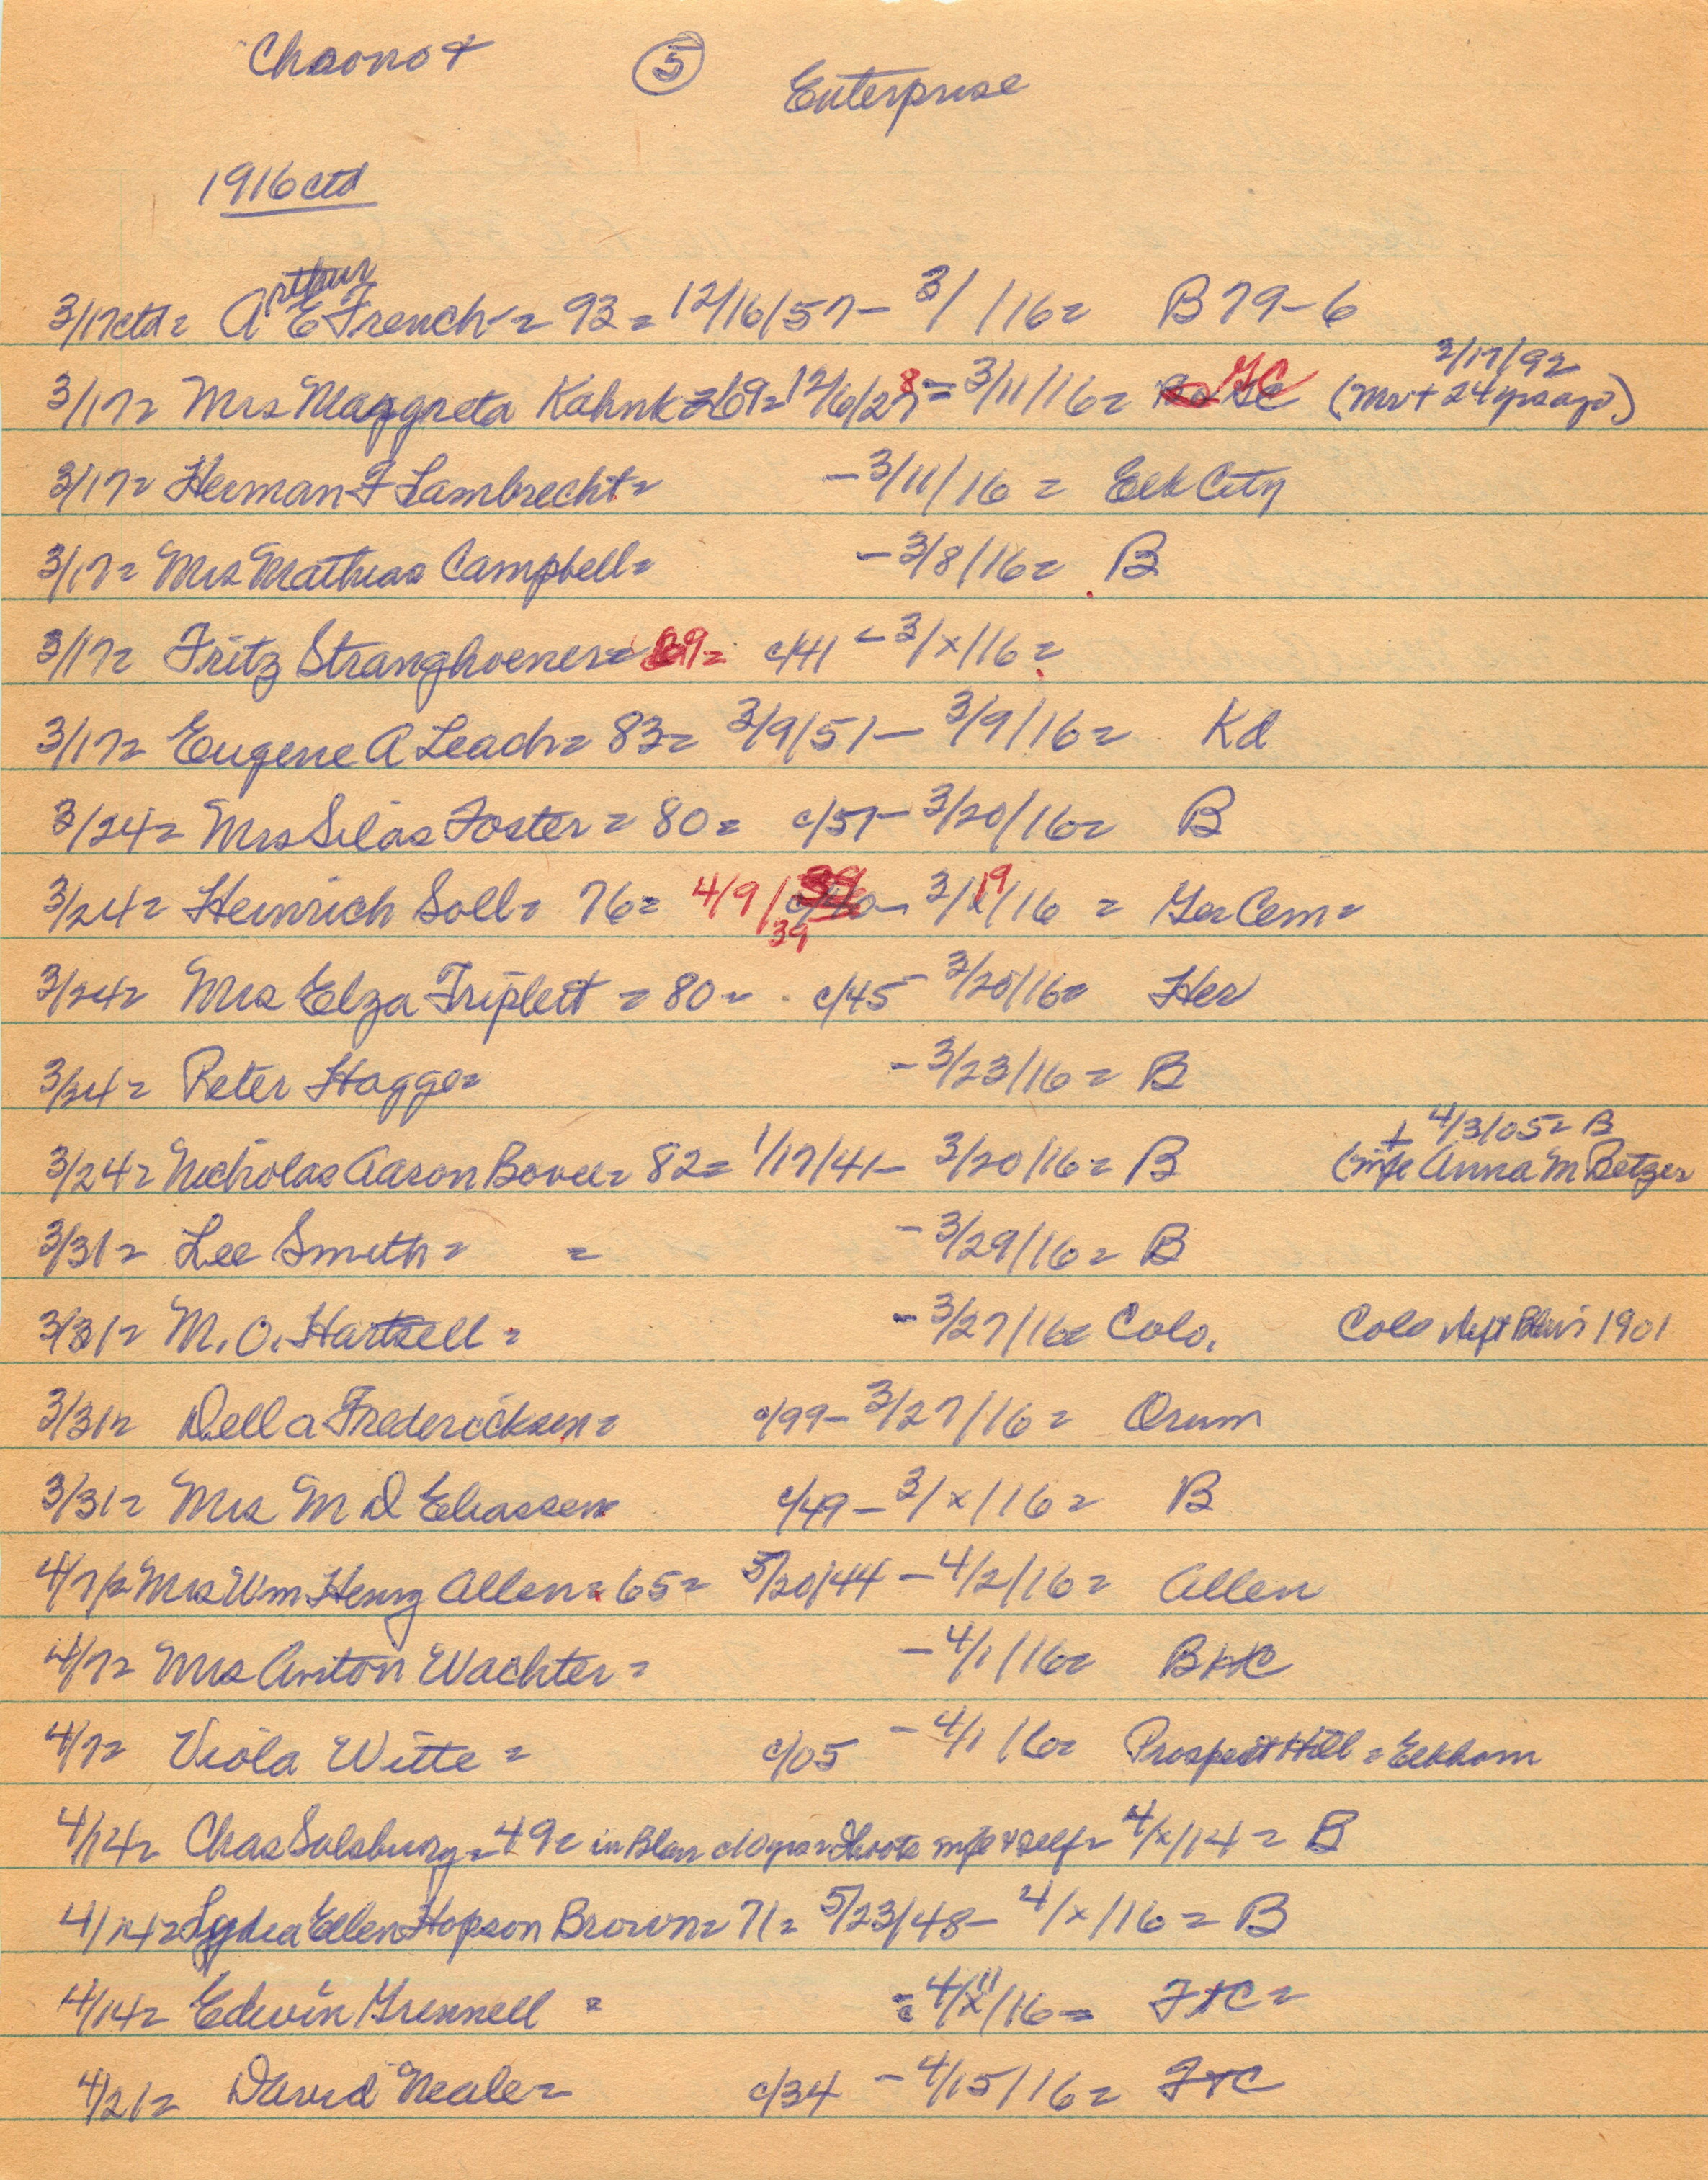 Chrono & ⑤ Enterprise
1916 ctd
3/17ctd= Arthur E French = 93 = 12/16/57 - 3/ /16 = B 79-6
3/17 = Mrs Maggreta Kahnk = 69 = 12/6/28 = 3/11/16 = GC (Mr + 24 yrs ago) 2/17/92
3/17 = Herman F Lambrecht = - 3/11/16 = Elk City
3/17 = Mrs Mathias Campbell = - 3/8/16 = B
3/17 = Fritz Stranghoener = 89 = c/41 - 3/x/16 =
3/17 = Eugene A Leach = 83 = 3/9/51 - 3/9/16 = Kd
3/24 = Mrs Silas Foster = 80 = c/57 - 3/20/16 = B
3/24 = Heinrich Soll = 76 = 4/9/39 - 3/19/16 = Ger Cem =
3/24 = Mrs Elza Triplett = 80 = c/45 - 3/20/16 = Her
3/24 = Peter Hagge = - 3/23/16 = B
3/24 = Nicholas Aaron Bovee = 82 = 1/17/41 - 3/20/16 = B (wife Anna M Betzer + 4/3/05 = B
3/31 = Lee Smith = = - 3/29/16 = B
3/31 = M. O. Hartzell = - 3/27/16 = Colo. Colo left Blair 1901
3/31 = Della Fredericksen = c/99 - 3/27/16 = Orum
3/31 = Mrs M D Eliassen c/49 - 3/x/16 = B
4/7/ = Mrs Wm Henry Allen = 65 = 5/20/44 - 4/2/16 = Allen
4/7 = Mrs Anton Wachter = - 4/1/16 = BHC
4/7 = Viola Witte = c/05 - 4/1/16 = Prospect Hill = Elkhorn
4/14 = Chas Salsburg = 49 = in Blair c/10 yrs = Shoots wife & self = 4/x/14 = B
4/14 = Lydia Ellen Hopson Brown = 71 = 5/23/48 - 4/x/16 = B
4/14 = Edwin Grennell = = 4/11/16 = FtC =
4/21 = David Neale = c/34 - 4/15/16 = FtC